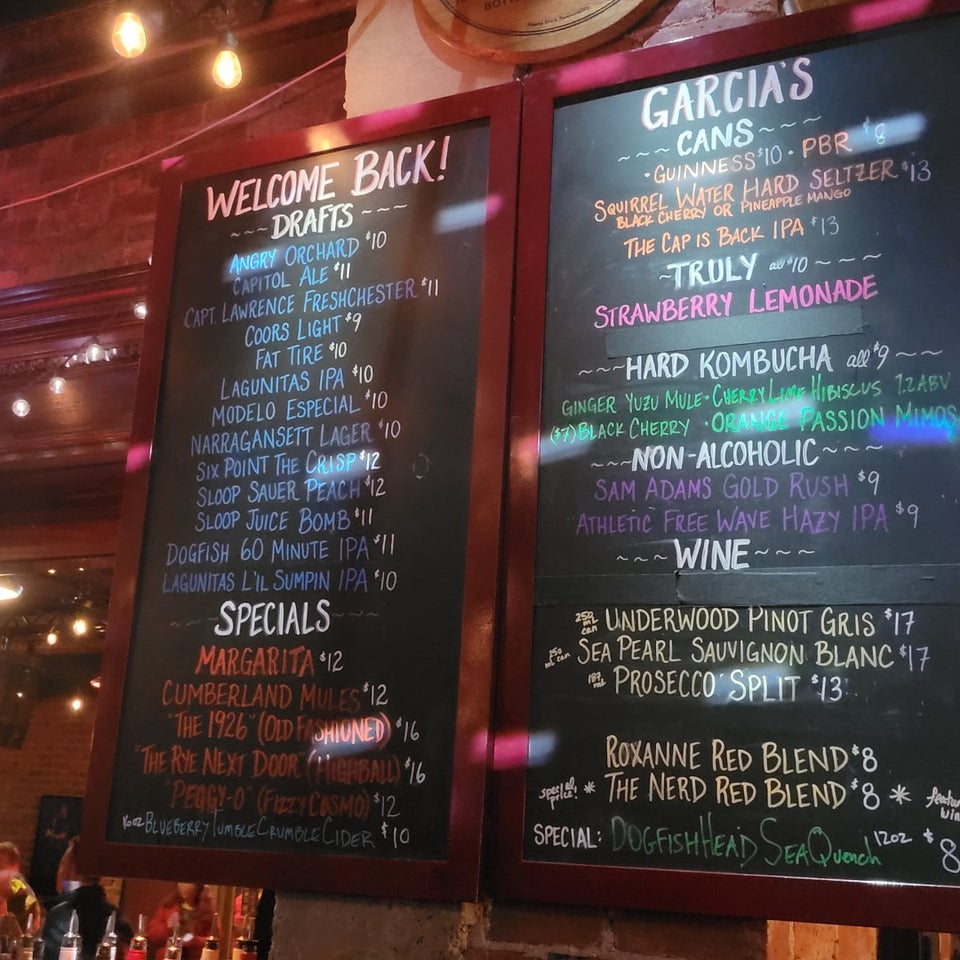 BOTT
WELCOME BACK!
~~~DRAFTS~~~
ANGRY ORCHARD $10
CAPITOL ALE $11
CAPT. LAWRENCE FRESHCHESTER $11
COORS LIGHT $9
FAT TIRE $10
LAGUNITAS IPA $10
MODELO ESPECIAL $10
NARRAGANSETT LAGER $10
SIX POINT THE CRISP $12
SLOOP SAUER PEACH $12
SLOOP JUICE BOMB $11
DOGFISH 60 MINUTE IPA $11
LAGUNITAS L'IL SUMPIN IPA $10
~~~SPECIALS~~~
MARGARITA $12
CUMBERLAND MULES $12
"THE 1926" (OLD FASHIONED) $16
"THE RYE NEXT DOOR (HIGHBALL) $16
"PEGGY-O" (FIZZY COSMO) $12
16oz BLUEBERRY TUMBLE CRUMBLE CIDER $10
GARCIA'S
~~~CANS~~~
·GUINNESS $10 · PBR $8
SQUIRREL WATER HARD SELTZER $13
BLACK CHERRY OR PINEAPPLE MANGO
THE CAP IS BACK IPA $13
~TRULY all $10 ~~~
STRAWBERRY LEMONADE
~~~HARD KOMBUCHA all $9 ~~
GINGER YUZU MULE · CHERRY LIME HIBISCUS 7.2 ABV
($7) BLACK CHERRY · ORANGE PASSION MIMOS
~~~NON-ALCOHOLIC~~~
SAM ADAMS GOLD RUSH $9
ATHLETIC FREE WAVE HAZY IPA $9
~~~WINE~~~
250 mL can UNDERWOOD PINOT GRIS $17
250 mL can SEA PEARL SAUVIGNON BLANC $17
187 mL PROSECCO SPLIT $13
ROXANNE RED BLEND $8
special price! * THE NERD RED BLEND $8 *
SPECIAL: DOGFISHHEAD SEAQUENCH 12oz $8